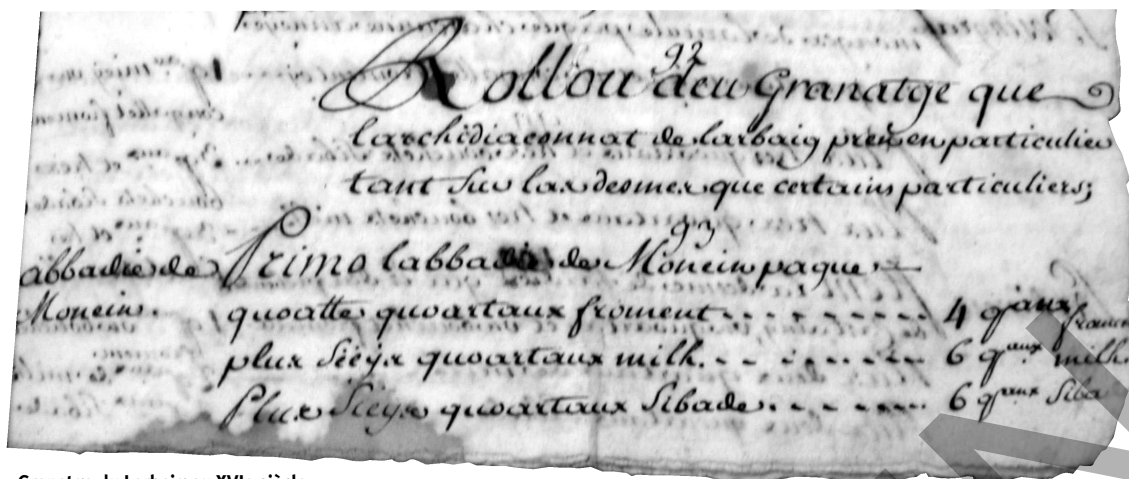 92
Rollou deu Granatge que
larchidiaconnat de larbaig pren en particulier
tant sur las desmes que certains particuliers;
93
abbadie de Moncin.
Primo labbadie de Monein paque
quoatte quoartaux froment - - - - - - - - 4 q^aux froment
plus sieys quoartaux milh. - - - - - - - 6 q^aux milh
Plus sieys quoartaux sibade. - - - - - - 6 q^aux siba